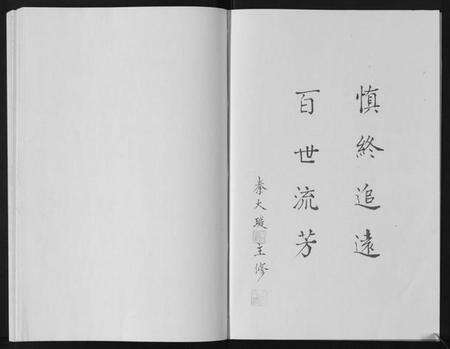 慎終追遠
百世流芳
秦大璇主修